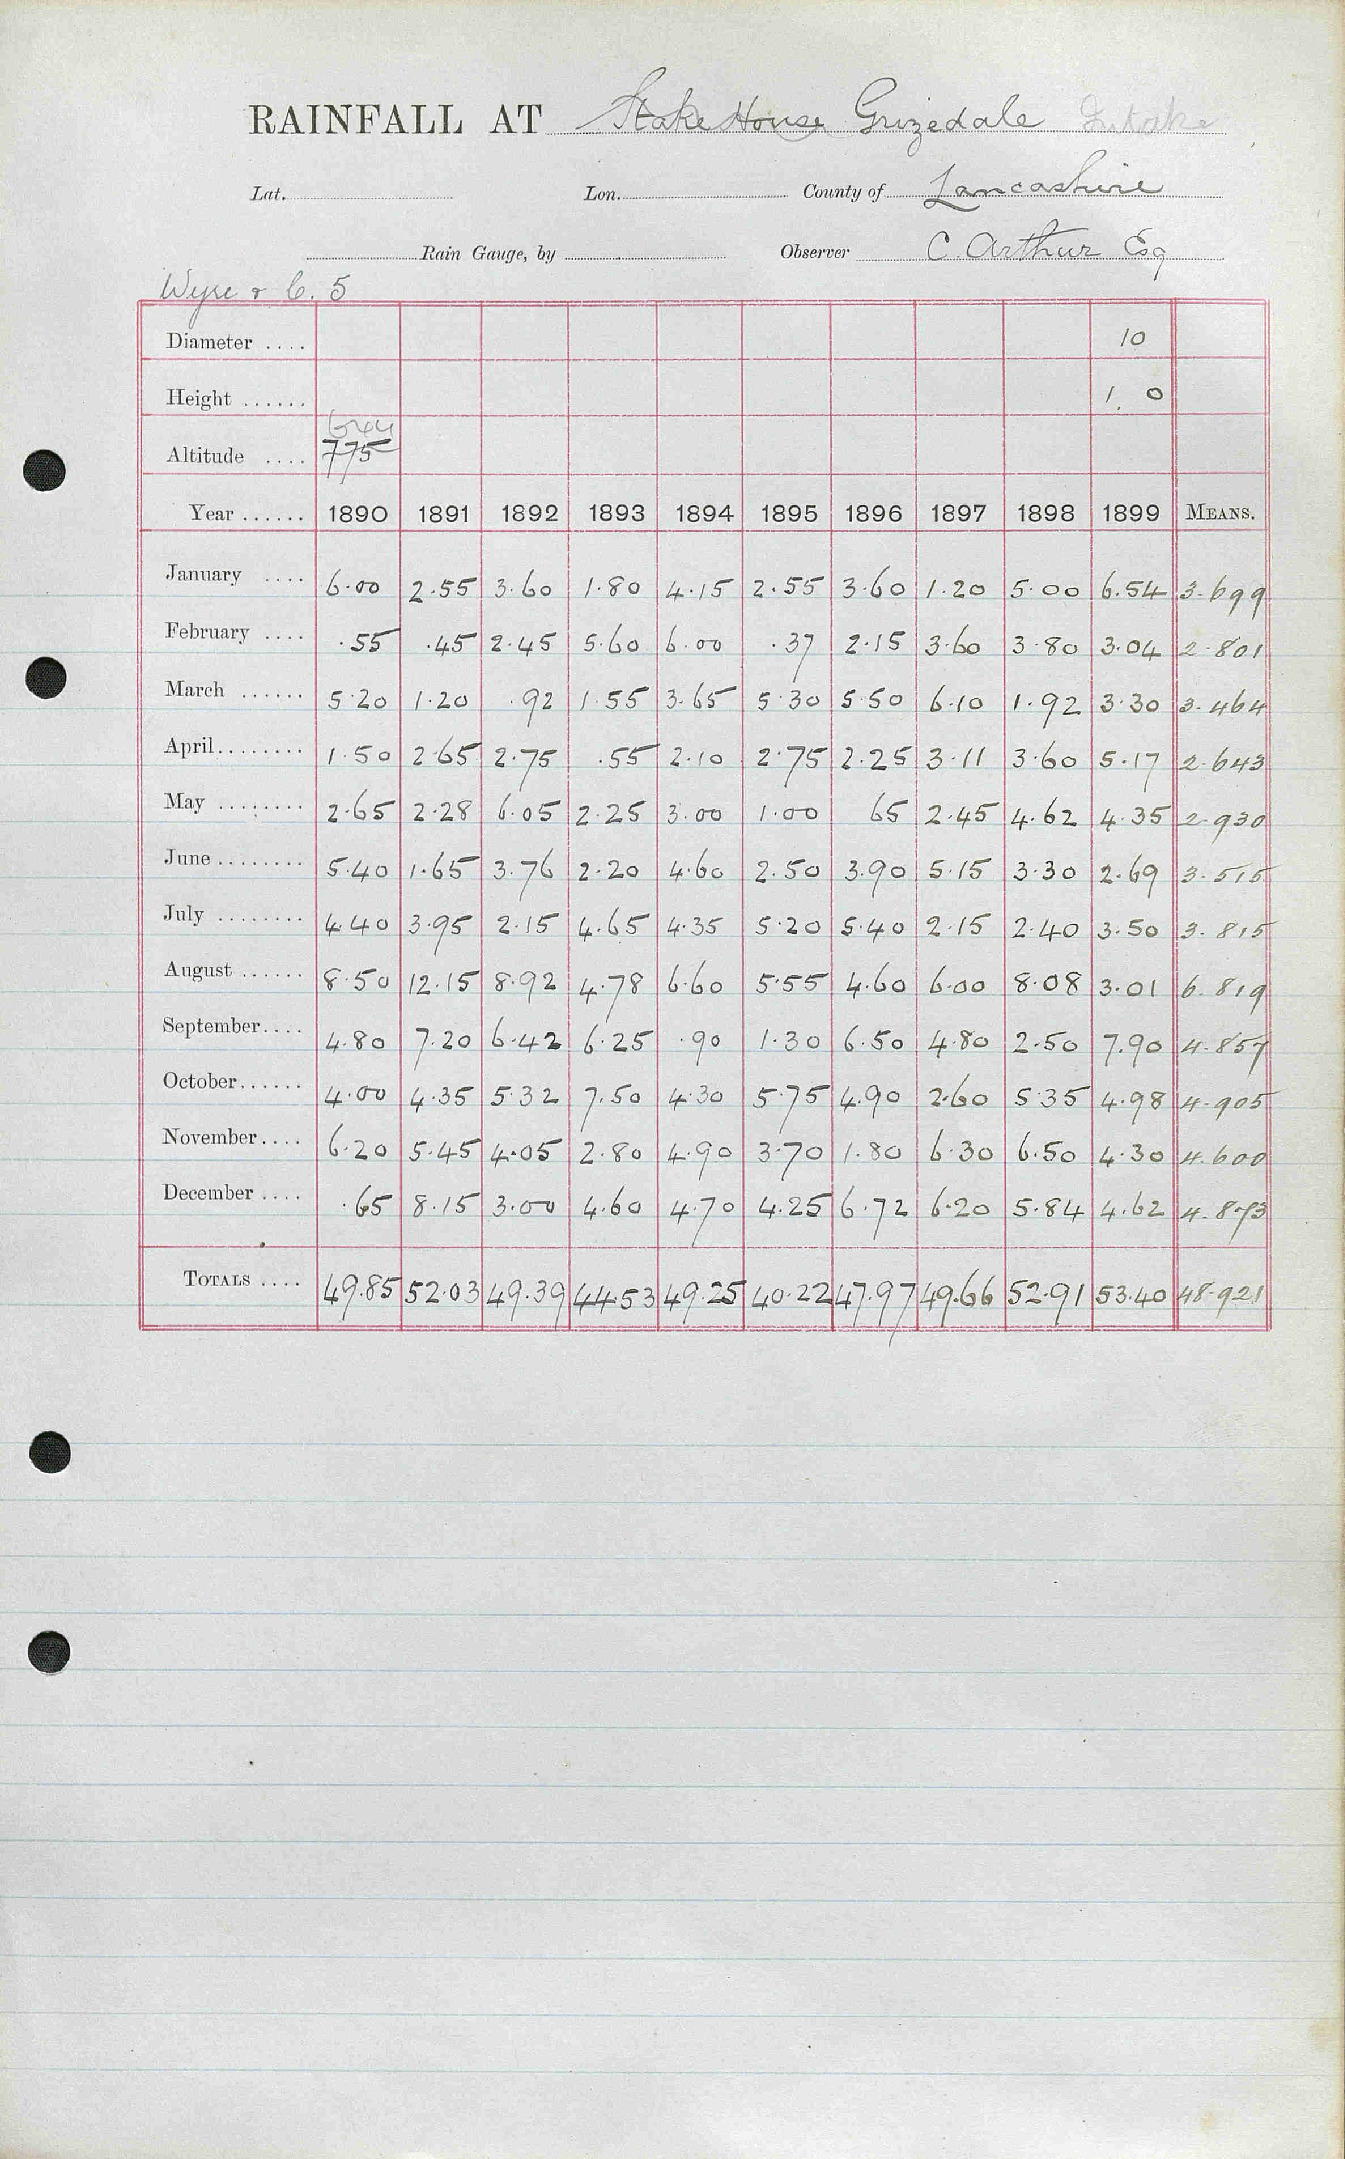 RAINFALL AT Stake House Grizedale Intake
Lat. Lon. County of Lancashire
Rain Gauge, by Observer C. Arthur Esq
Wyre & C. 5
Diameter .... 10
Height ...... 1. 0
Altitude .... 775
Year ...... 1890 1891 1892 1893 1894 1895 1896 1897 1898 1899 MEANS.
January .... 6.00 2.55 3.60 1.80 4.15 2.55 3.60 1.20 5.00 6.54 3.699
February .... .55 .45 2.45 5.60 6.00 .37 2.15 3.60 3.80 3.04 2.801
March ...... 5.20 1.20 .92 1.55 3.65 5.30 5.50 6.10 1.92 3.30 3.464
April........ 1.50 2.65 2.75 .55 2.10 2.75 2.25 3.11 3.60 5.17 2.643
May ........ 2.65 2.28 6.05 2.25 3.00 1.00 65 2.45 4.62 4.35 2.930
June........ 5.40 1.65 3.76 2.20 4.60 2.50 3.90 5.15 3.30 2.69 3.515
July ........ 4.40 3.95 2.15 4.65 4.35 5.20 5.40 2.15 2.40 3.50 3.815
August ...... 8.50 12.15 8.92 4.78 6.60 5.55 4.60 6.00 8.08 3.01 6.819
September.... 4.80 7.20 6.42 6.25 .90 1.30 6.50 4.80 2.50 7.90 4.857
October...... 4.00 4.35 5.32 7.50 4.30 5.75 4.90 2.60 5.35 4.98 4.905
November.... 6.20 5.45 4.05 2.80 4.90 3.70 1.80 6.30 6.50 4.30 4.600
December .... .65 8.15 3.00 4.60 4.70 4.25 6.72 6.20 5.84 4.62 4.873
TOTALS .... 49.85 52.03 49.39 44.53 49.25 40.22 47.97 49.66 52.91 53.40 48.921